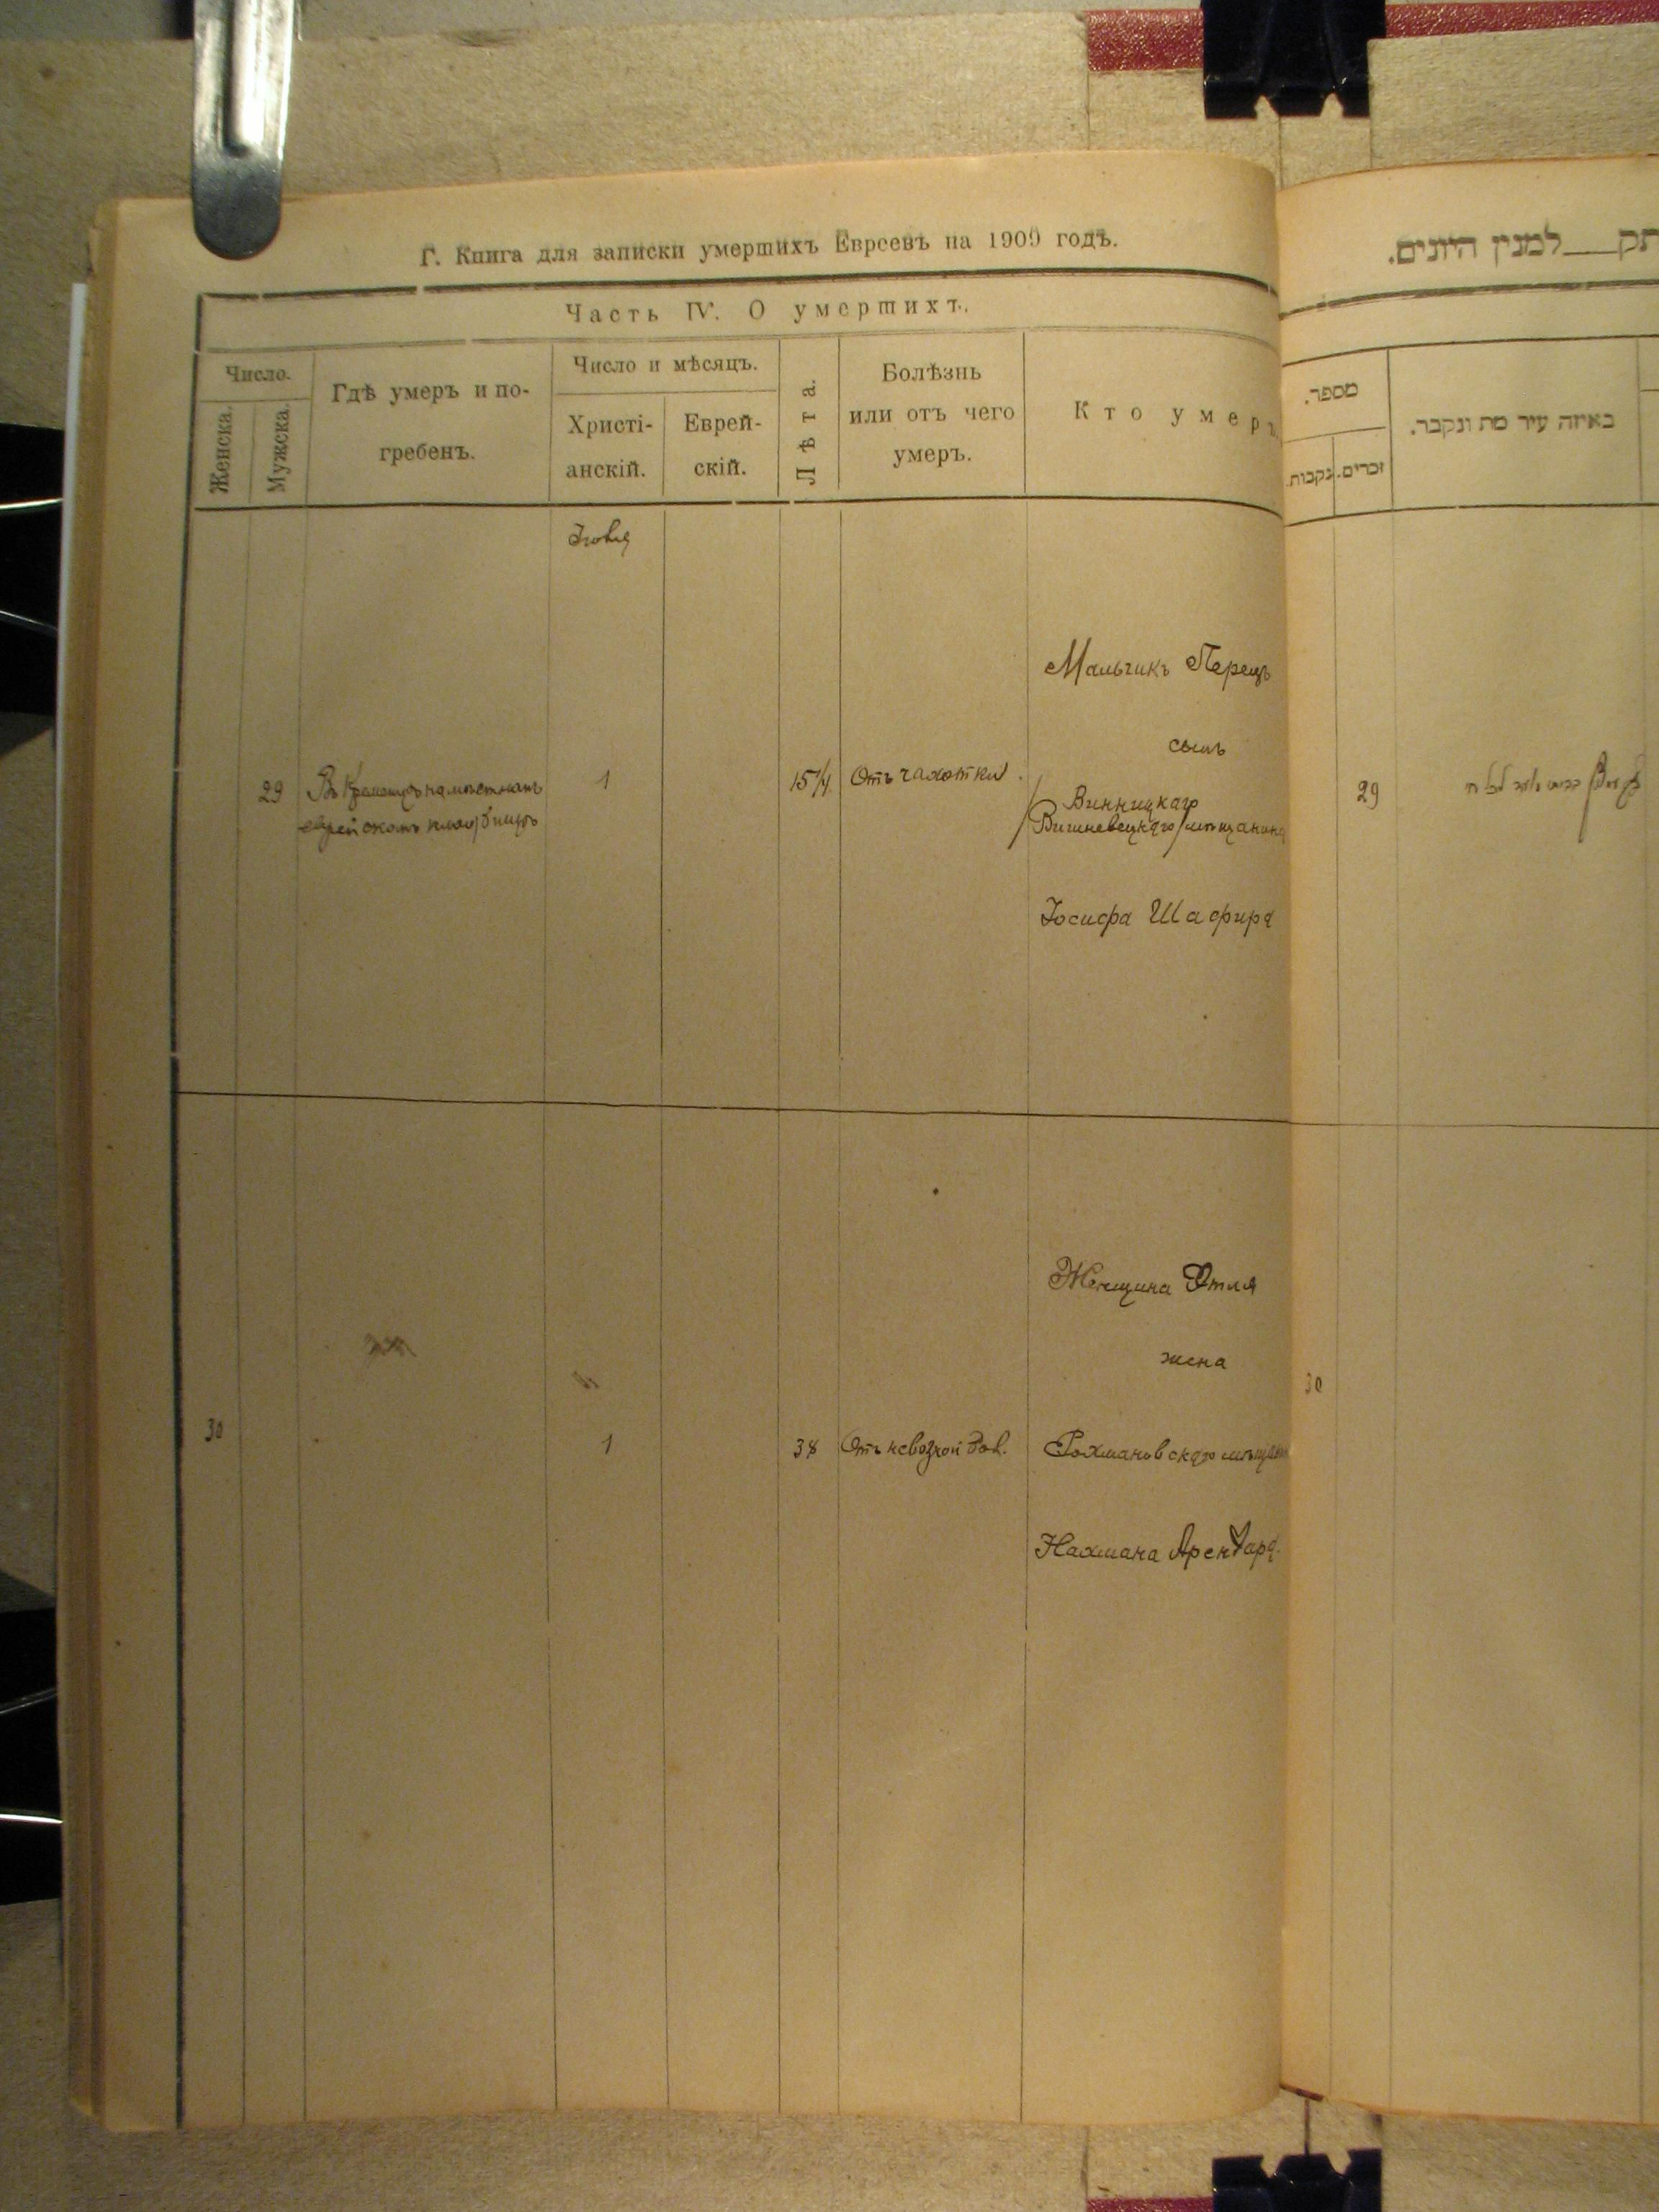 Г. Книга для записки умершихъ Евреевъ на 1909 годъ.
Часть IV. О умершихъ.
Число.
Женска.
Мужска.
Гдѣ умеръ и по-
гребенъ.
Число и мѣсяцъ.
Христі-
анскій.
Еврей-
скій.
Лѣта.
Болѣзнь
или отъ чего
умеръ.
Кто умеръ
Іюня
29
Въ Кременцѣ на мѣстномъ
еврейскомъ кладбищѣ
1
15
Отъ чахотки
Мальчикъ Перецъ
сынъ
Винницкаго
Вишневецкаго мѣщанина
Іосифа Шафира
30
1
38
Отъ
Женщина Этля
жена
Рохмановскаго
Нахмана Арендара
תק___למנין היונים.
מספר.
נקבות.
זכרים.
באיזה עיר מת ונקבר.
29
30